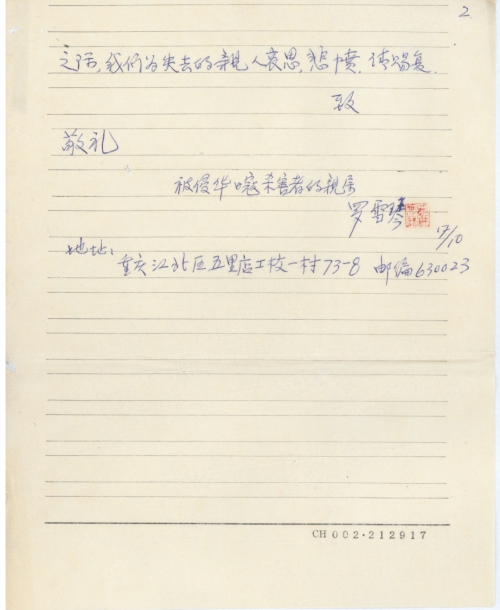 2
之际,我们为失去的亲人哀思,悲愤,请赐复.
致
敬礼
被侵华日寇杀害者的亲属
罗雪琴
17/10
地址:
重庆江北区五里店工校一村73-8 邮编630023
CH 002·212917